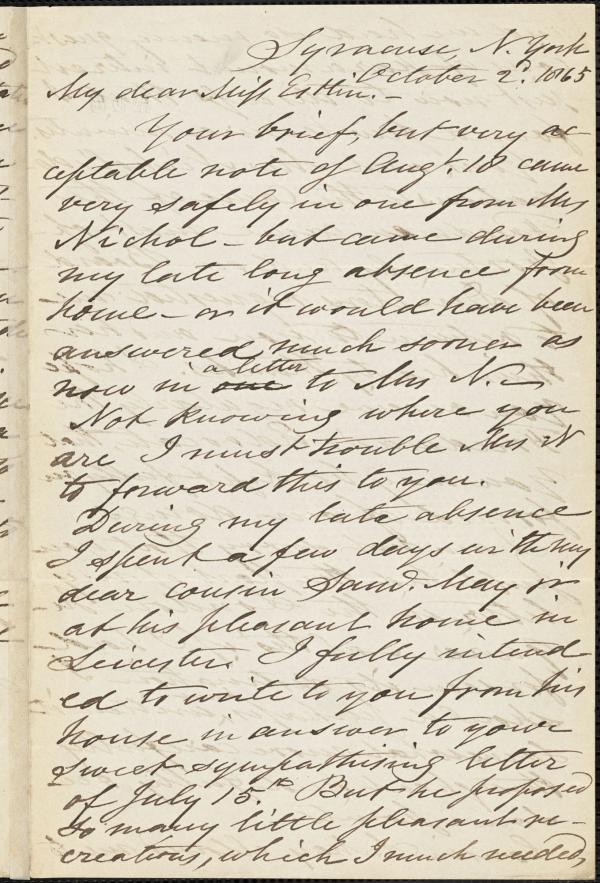 Syracuse, N. York
October 2d. 1865
My dear Miss Estlin. -
Your brief, but very ac-
ceptable note of Augt. 18 came
very safely in one from Mrs
Nichol - but came during
my late long absence from
home - or it would have been
answered much sooner as
now in one a letter to Mrs N. -
Not knowing where you
are I must trouble Mrs N
to forward this to you.
During my late absence
I spent a few days with my
dear cousin Saml. May jr
at his pleasant home in
Leicester. I fully intend
ed to write to you from his
house in answer to your
sweet sympathising letter
of July 15th. But he proposed
so many little pleasant re-
creations, which I much needed,